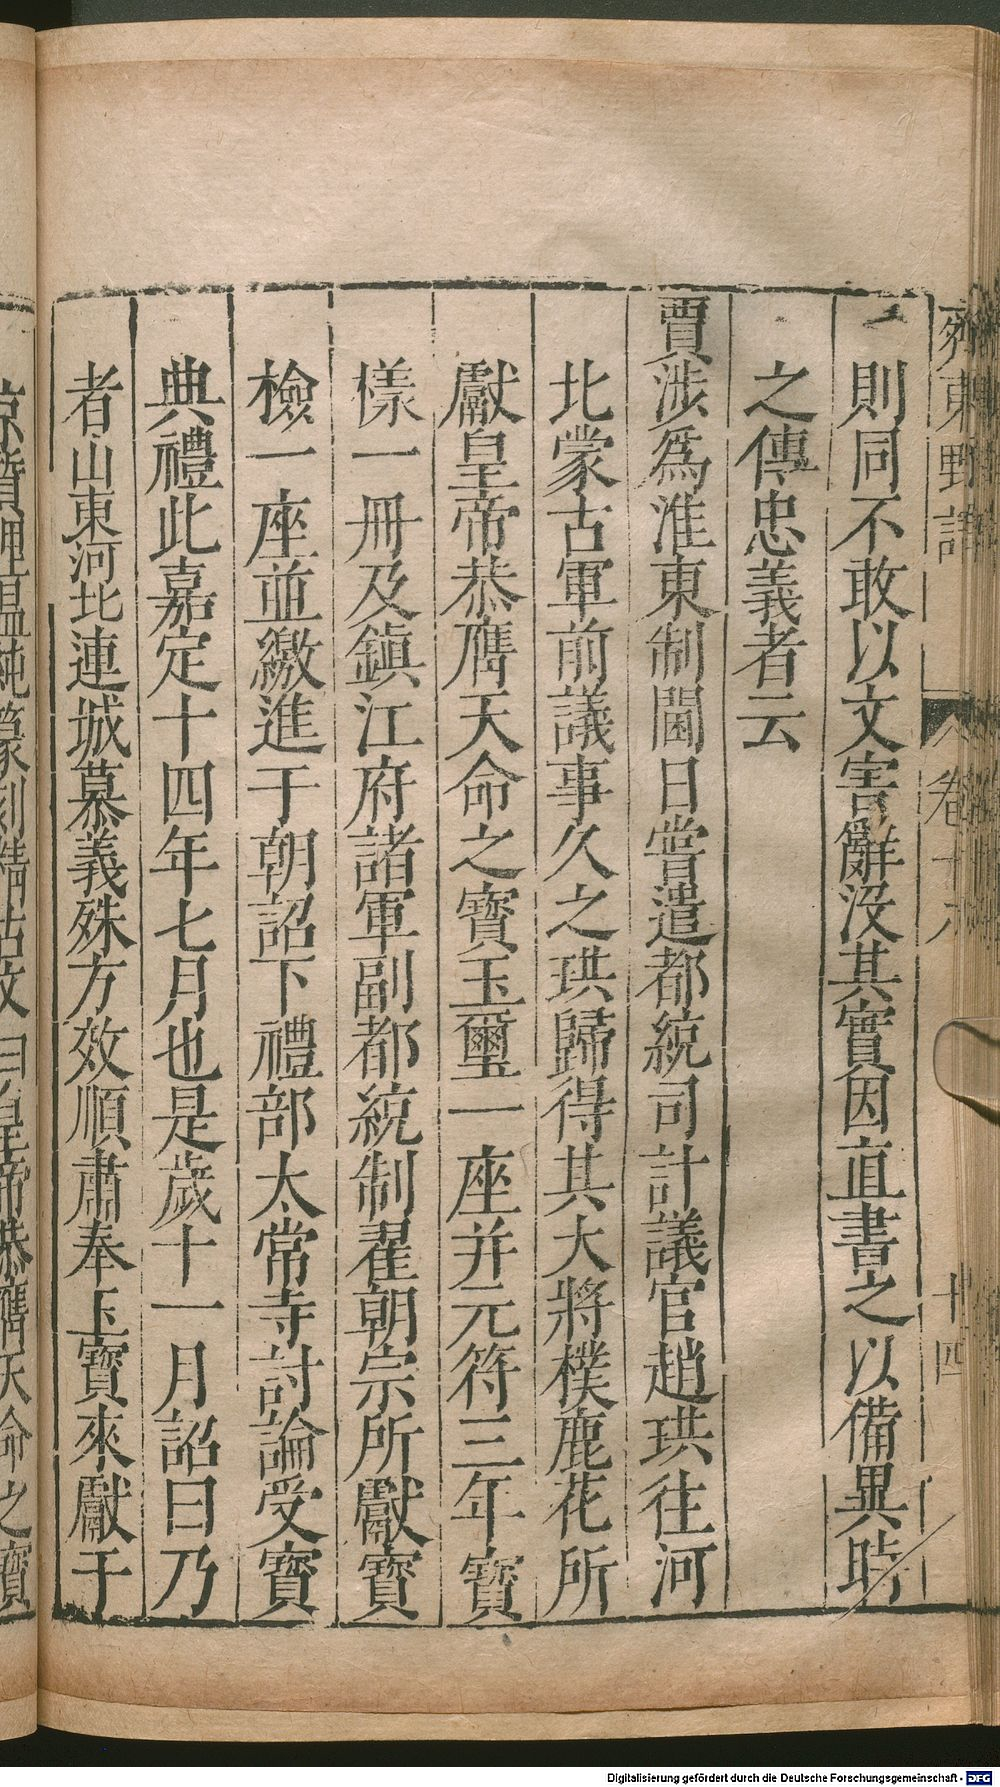 齊東野語
卷十九
十四
則同不敢以文害辭沒其實因直書之以備異時
之傳忠義者云
賈涉爲淮東制閫日嘗遣都統司計議官趙珙往河
北蒙古軍前議事久之珙歸得其大將樸鹿花所
獻皇帝恭膺天命之寶玉璽一座并元符三年寶
樣一冊及鎮江府諸軍副都統制翟朝宗所獻寶
檢一座並繳進于朝詔下禮部太常寺討論受寶
典禮此嘉定十四年七月也是歲十一月詔曰乃
者山東河北連城慕義殊方效順肅奉玉寶來獻于
皇帝恭膺天命之寶
Digitalisierung gefördert durch die Deutsche Forschungsgemeinschaft - DFG